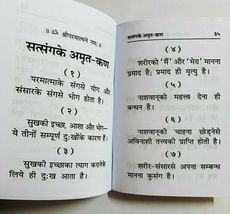 ॥ ॐ श्रीपरमात्मने नमः ॥
सत्संगके अमृत-कण
(१)
परमात्माके संगसे योग और
संसारके संगसे भोग होता है।
(२)
सुखकी इच्छा, आशा और भोग—
ये तीनों सम्पूर्ण दुःखोंके कारण हैं।
(३)
सुखकी इच्छाका त्याग करानेके
लिये ही दुःख आता है।
सत्संगके अमृत-कण
(४)
शरीरको 'मैं' और 'मेरा' मानना
प्रमाद है; प्रमाद ही मृत्यु है।
(५)
नाशवान्‌को महत्त्व देना ही
बन्धन है।
(६)
नाशवान्‌की चाहना छोड़नेसे
अविनाशी तत्त्वकी प्राप्ति होती है।
(७)
शरीर-संसारसे अपना सम्बन्ध
मानना कुसंग है।